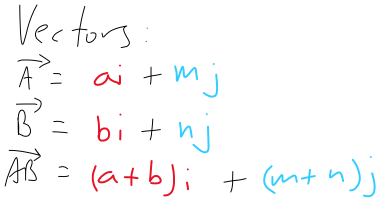 Vectors:
A⃗ = ai + mj
B⃗ = bi + nj
A⃗B⃗ = (a+b)i + (m+n)j